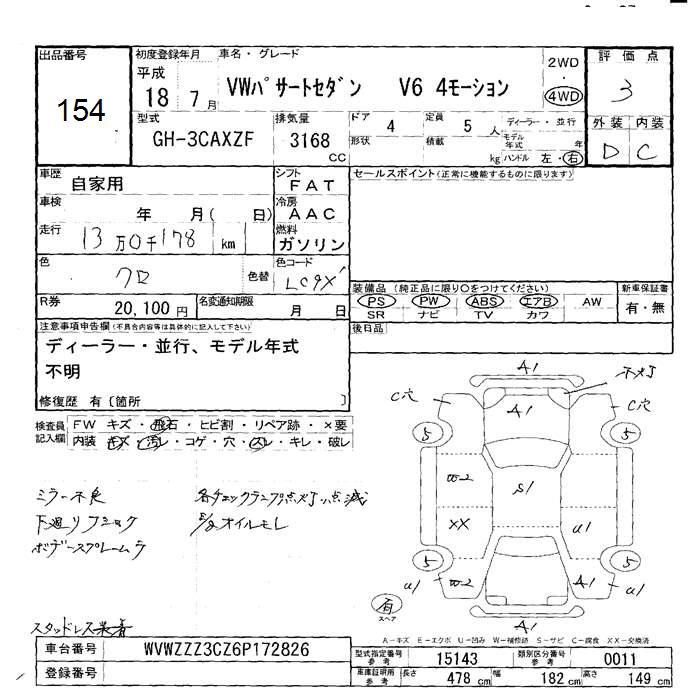 出品番号 154
初度登録年月 平成 18 7月
車名・グレード VWパサートセダン V6 4モーション
2WD・4WD
評価点 3
型式 GH-3CAXZF
排気量 3168 CC
ドア 4
形状
定員 5 人
積載 kg
ディーラー・並行
モデル年式 年
ハンドル 左・右
外装 D
内装 C
車歴 自家用
シフト FAT
セールスポイント(正常に機能するものに限ります)
車検 年 月( 日)
冷房 AAC
走行 13万0千178 km
燃料 ガソリン
色 クロ 色替
色コード LC9X
装備品(純正品に限り○をつけてください)
PS PW ABS エアB AW
SR ナビ TV カワ
新車保証書 有・無
R券 20,100円
名変通知期限 月 日
後日品
注意事項申告欄(不具合内容等は具体的に記入して下さい)
ディーラー・並行、モデル年式
不明
修復歴 有〔箇所 〕
検査員記入欄
FW キズ・飛石・ヒビ割・リペア跡・×要
内装 キズ・汚レ・コゲ・穴・スレ・キレ・破レ
ミラー不良
各チェックランプ点灯、点滅
下廻りフショク
オイルモレ
スタッドレス装着
A1
A1
C穴
C穴
5
5
W2
S1
XX
U1
5
5
U1
W2
A1
U1
A1
有
スペア
A-キズ E-エクボ U-凹み W-補修跡 S-サビ C-腐食 XX-交換済
車台番号 WVWZZZ3CZ6P172826
登録番号
型式指定番号 参考 15143
類別区分番号 参考 0011
車庫証明用 参考 長さ 478 cm 幅 182 cm 高さ 149 cm